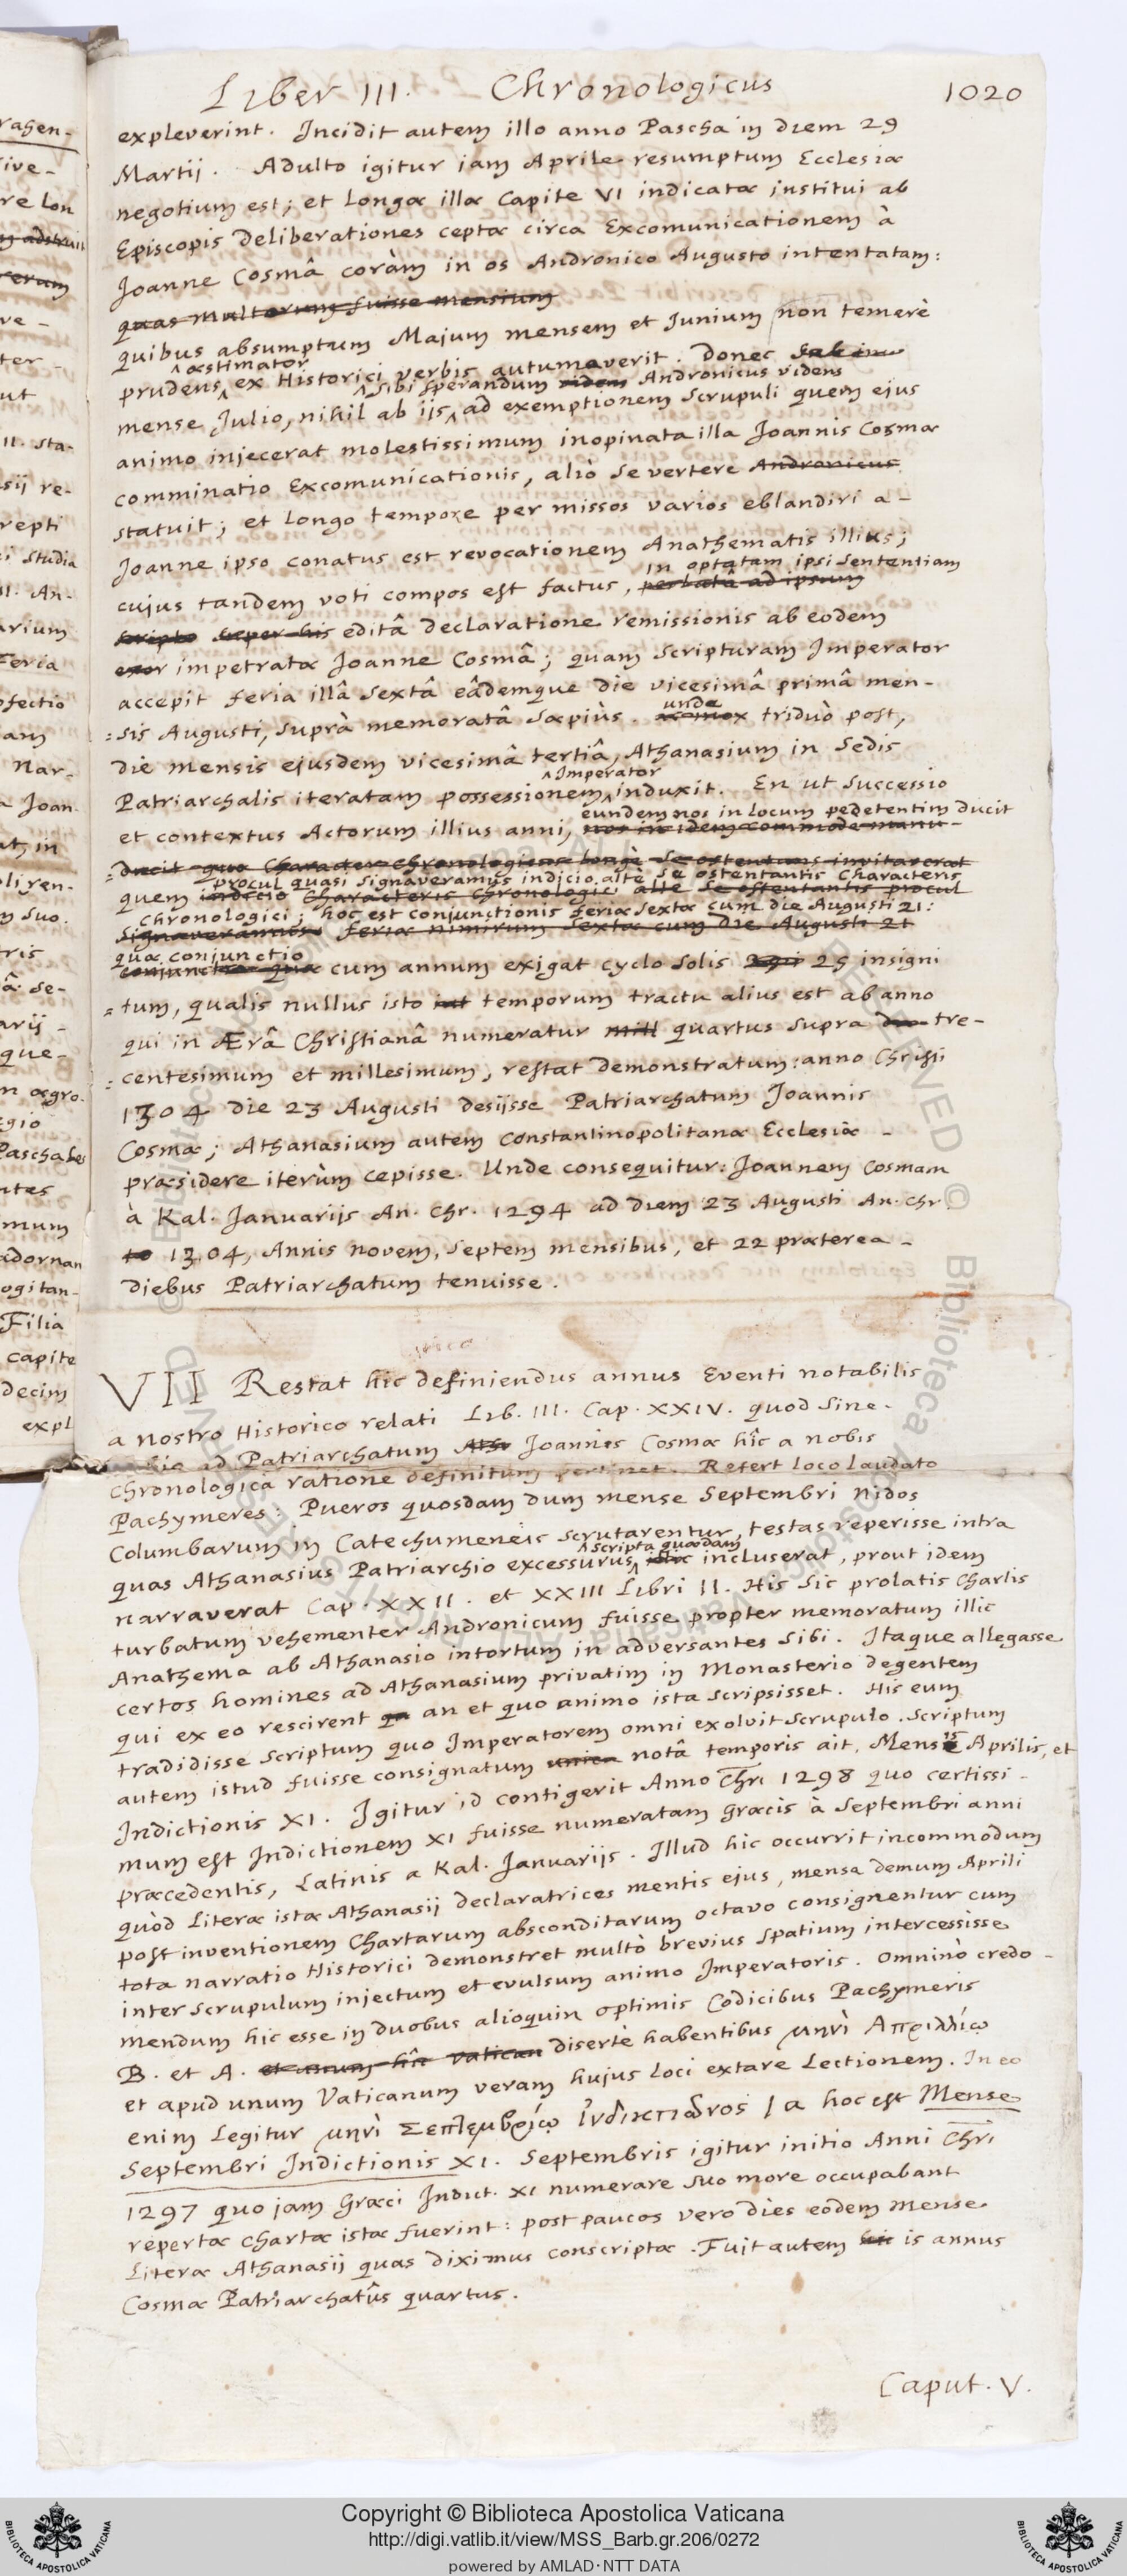 Liber III. Chronologicus 1020
expleverint. Incidit autem illo anno Pascha in diem 29
Martij. Adulto igitur iam Aprile resumptum Ecclesiæ
negotium est; et longæ illæ Capite VI indicatæ institui ab
Episcopis deliberationes ceptæ circa Excomunicationem à
Joanne Cosmâ coràm in os Andronico Augusto intentatam:
quas multorum fuisse mensium
quibus absumptum Majum mensem et Junium non temerè
æstimator
prudens ex Historici verbis autumaverit. Donec
sibi sperandum Andronicus videns
mense Julio, nihil ab iis ad exemptionem scrupuli quem ejus
animo injecerat molestissimum inopinata illa Joannis Cosmæ
comminatio Excomunicationis, aliò se vertere Andronicus
statuit; et longo tempore per missos varios eblandiri a-
Joanne ipso conatus est revocationem Anathematis illius;
in optatam ipsi sententiam
cujus tandem voti compos est factus, perlatâ ad ipsum
scripto super his editâ declaratione remissionis ab eodem
exor impetratæ Joanne Cosmâ; quam scripturam Imperator
accepit feria illâ sextâ eâdemque die vicesimâ primâ men-
unde
sis Augusti, suprà memoratâ sæpiùs. ac mox triduò post,
die mensis ejusdem vicesimâ tertiâ, Athanasium in Sedis
Imperator
Patriarchalis iteratam possessionem induxit. En ut successio
eundem nos in locum pedetentim ducit
et contextus Actorum illius anni, nos in idem commode manu-
ducit quo Character Chronologicus longè se ostentans invitaverat
procul quasi signaveramus indicio altè se ostentantis Characteris
quem indicio Characteris Chronologici alte se ostentantis procul
Chronologici; hoc est conjunctionis feriæ sextæ cum die Augusti 21:
signaveramus feriæ nimirum sextæ cum die Augusti 21
quæ conjunctio
conjunctio quæ cum annum exigat cyclo Solis 25 insigni
tum, qualis nullus isto temporum tractu alius est ab anno
qui in Ærâ Christianâ numeratur mill quartus supra tre-
centesimum et millesimum, restat demonstratum: anno Christi
1304 die 23 Augusti desijsse Patriarchatum Joannis
Cosmæ; Athanasium autem Constantinopolitanæ Ecclesiæ -
præsidere iterùm cepisse. Unde consequitur: Joannem Cosmam
à Kal. Januarijs An. Chr. 1294 ad diem 23 Augusti An. Chr
1304, Annis novem, septem mensibus, et 22 præterea -
diebus Patriarchatum tenuisse.
VII Restat hic definiendus annus Eventi notabilis
a nostro Historico relati Lib. III. Cap. XXIV. quod sine-
ad Patriarchatum Joannis Cosmæ hîc a nobis
Chronologica ratione definitum pertinet. Refert loco laudato
Pachymeres: Pueros quosdam dum mense Septembri nidos
Columbarum in Catechumeneis scrutarentur, testas reperisse intra
scripta quædam
quas Athanasius Patriarchio excessurus incluserat, prout idem
narraverat Cap. XXII. et XXIII Libri II. His sic prolatis Chartis
turbatum vehementer Andronicum fuisse propter memoratum illic
Anathema ab Athanasio intortum in adversantes sibi. Itaque allegasse
certos homines ad Athanasium privatim in Monasterio degentem
qui ex eo rescirent an et quo animo ista scripsisset. His eum
tradidisse scriptum quo Imperatorem omni exolvit scrupulo. Scriptum
autem istud fuisse consignatum unica notâ temporis ait, Mensis Aprilis, et
Indictionis XI. Igitur id contigerit Anno Chri 1298 quo certissi-
mum est Indictionem XI fuisse numeratam Græcis à Septembri anni
præcedentis, Latinis a Kal. Januarijs. Illud hic occurrit incommodum
quòd Literæ istæ Athanasij declaratrices mentis ejus, mense demum Aprili
post inventionem Chartarum absconditarum octavo consignentur cum
tota narratio Historici demonstret multò brevius spatium intercessisse
inter scrupulum injectum et evulsum animo Imperatoris. Omninò credo -
mendum hic esse in duobus alioquin optimis Codicibus Pachymeris
B. et A. et unum hîc vatican disertè habentibus μηνὶ Ἀπριλλίῳ
et apud unum Vaticanum veram hujus loci extare Lectionem. In eo
enim legitur μηνὶ Σεπτεμβρίῳ ἰνδικτιῶνος ια hoc est Mense
Septembri Indictionis XI. Septembris igitur initio Anni Chri
1297 quo jam Græci Indict. XI numerare suo more occupabant
repertæ chartæ istæ fuerint: post paucos vero dies eodem mense
Literæ Athanasij quas diximus conscriptæ. Fuit autem is annus
Cosmæ Patriarchatûs quartus.
Caput. V.
Copyright © Biblioteca Apostolica Vaticana
http://digi.vatlib.it/view/MSS_Barb.gr.206/0272
powered by AMLAD·NTT DATA